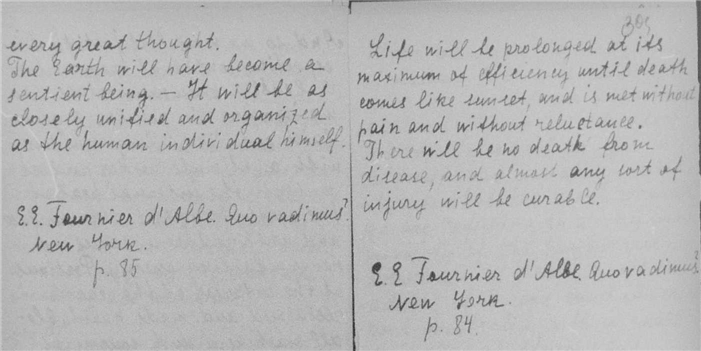 every great thought.
The Earth will have become a
sentient being. — It will be as
closely unified and organized
as the human individual himself.
E.E. Fournier d'Albe. Quo vadimus?
New York.
p. 85
Life will be prolonged at its
maximum of efficiency until death
comes like sunset, and is met without
pain and without reluctance.
There will be no death from
disease, and almost any sort of
injury will be curable.
E.E Fournier d'Albe. Quo vadimus?
New York.
p. 84.